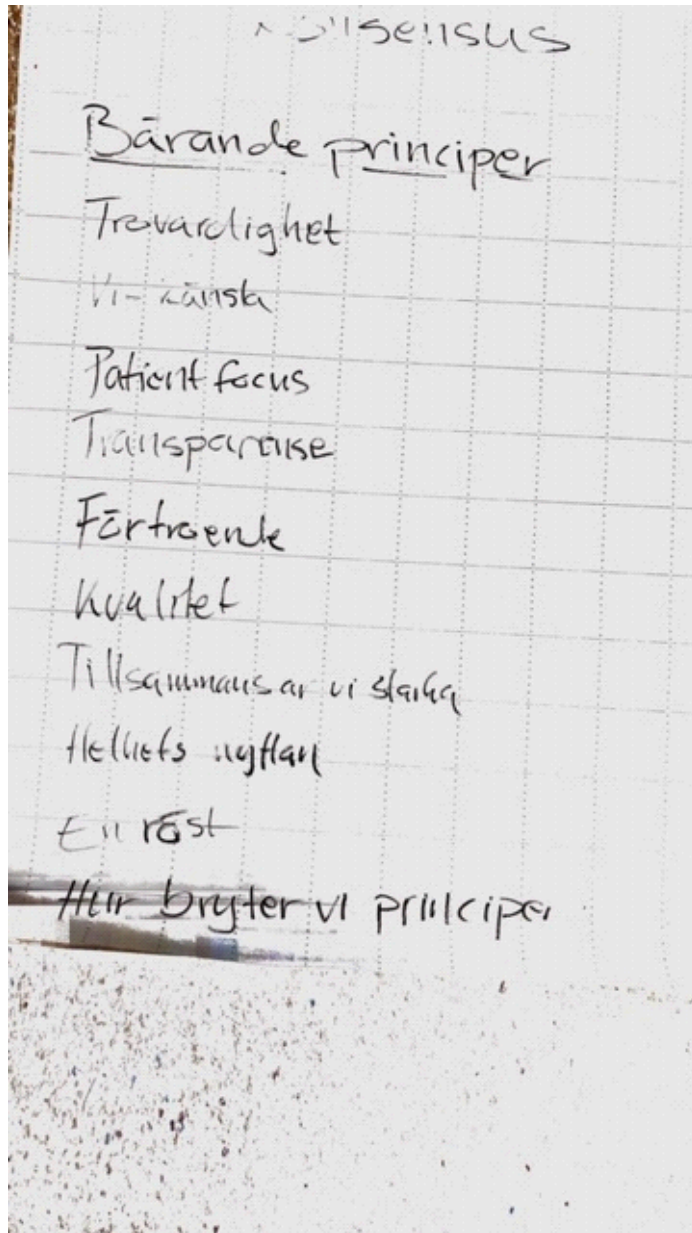 Konsensus
Bärande principer
Trovärdighet
Vi-känsla
Patient focus
Transparense
Förtroende
Kvalitet
Tillsammans är vi starka
En röst
Hur bryter vi principer